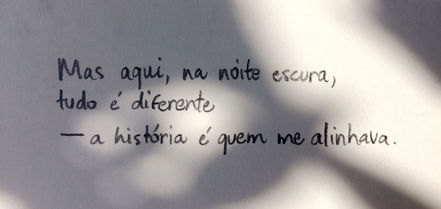 Mas aqui, na nóite escura,
tudo é diferente
— a história é quem me alinhava.